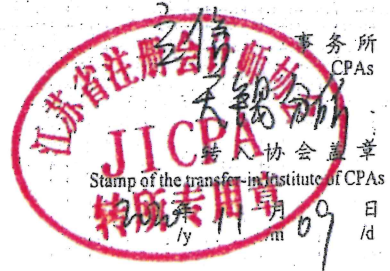 立信
事务所
CPAs
江苏省注册会计师协会
无锡分所
JICPA
转入协会盖章
Stamp of the transfer-in Institute of CPAs
转所专用章
年 11 月 09 日
/y /m /d